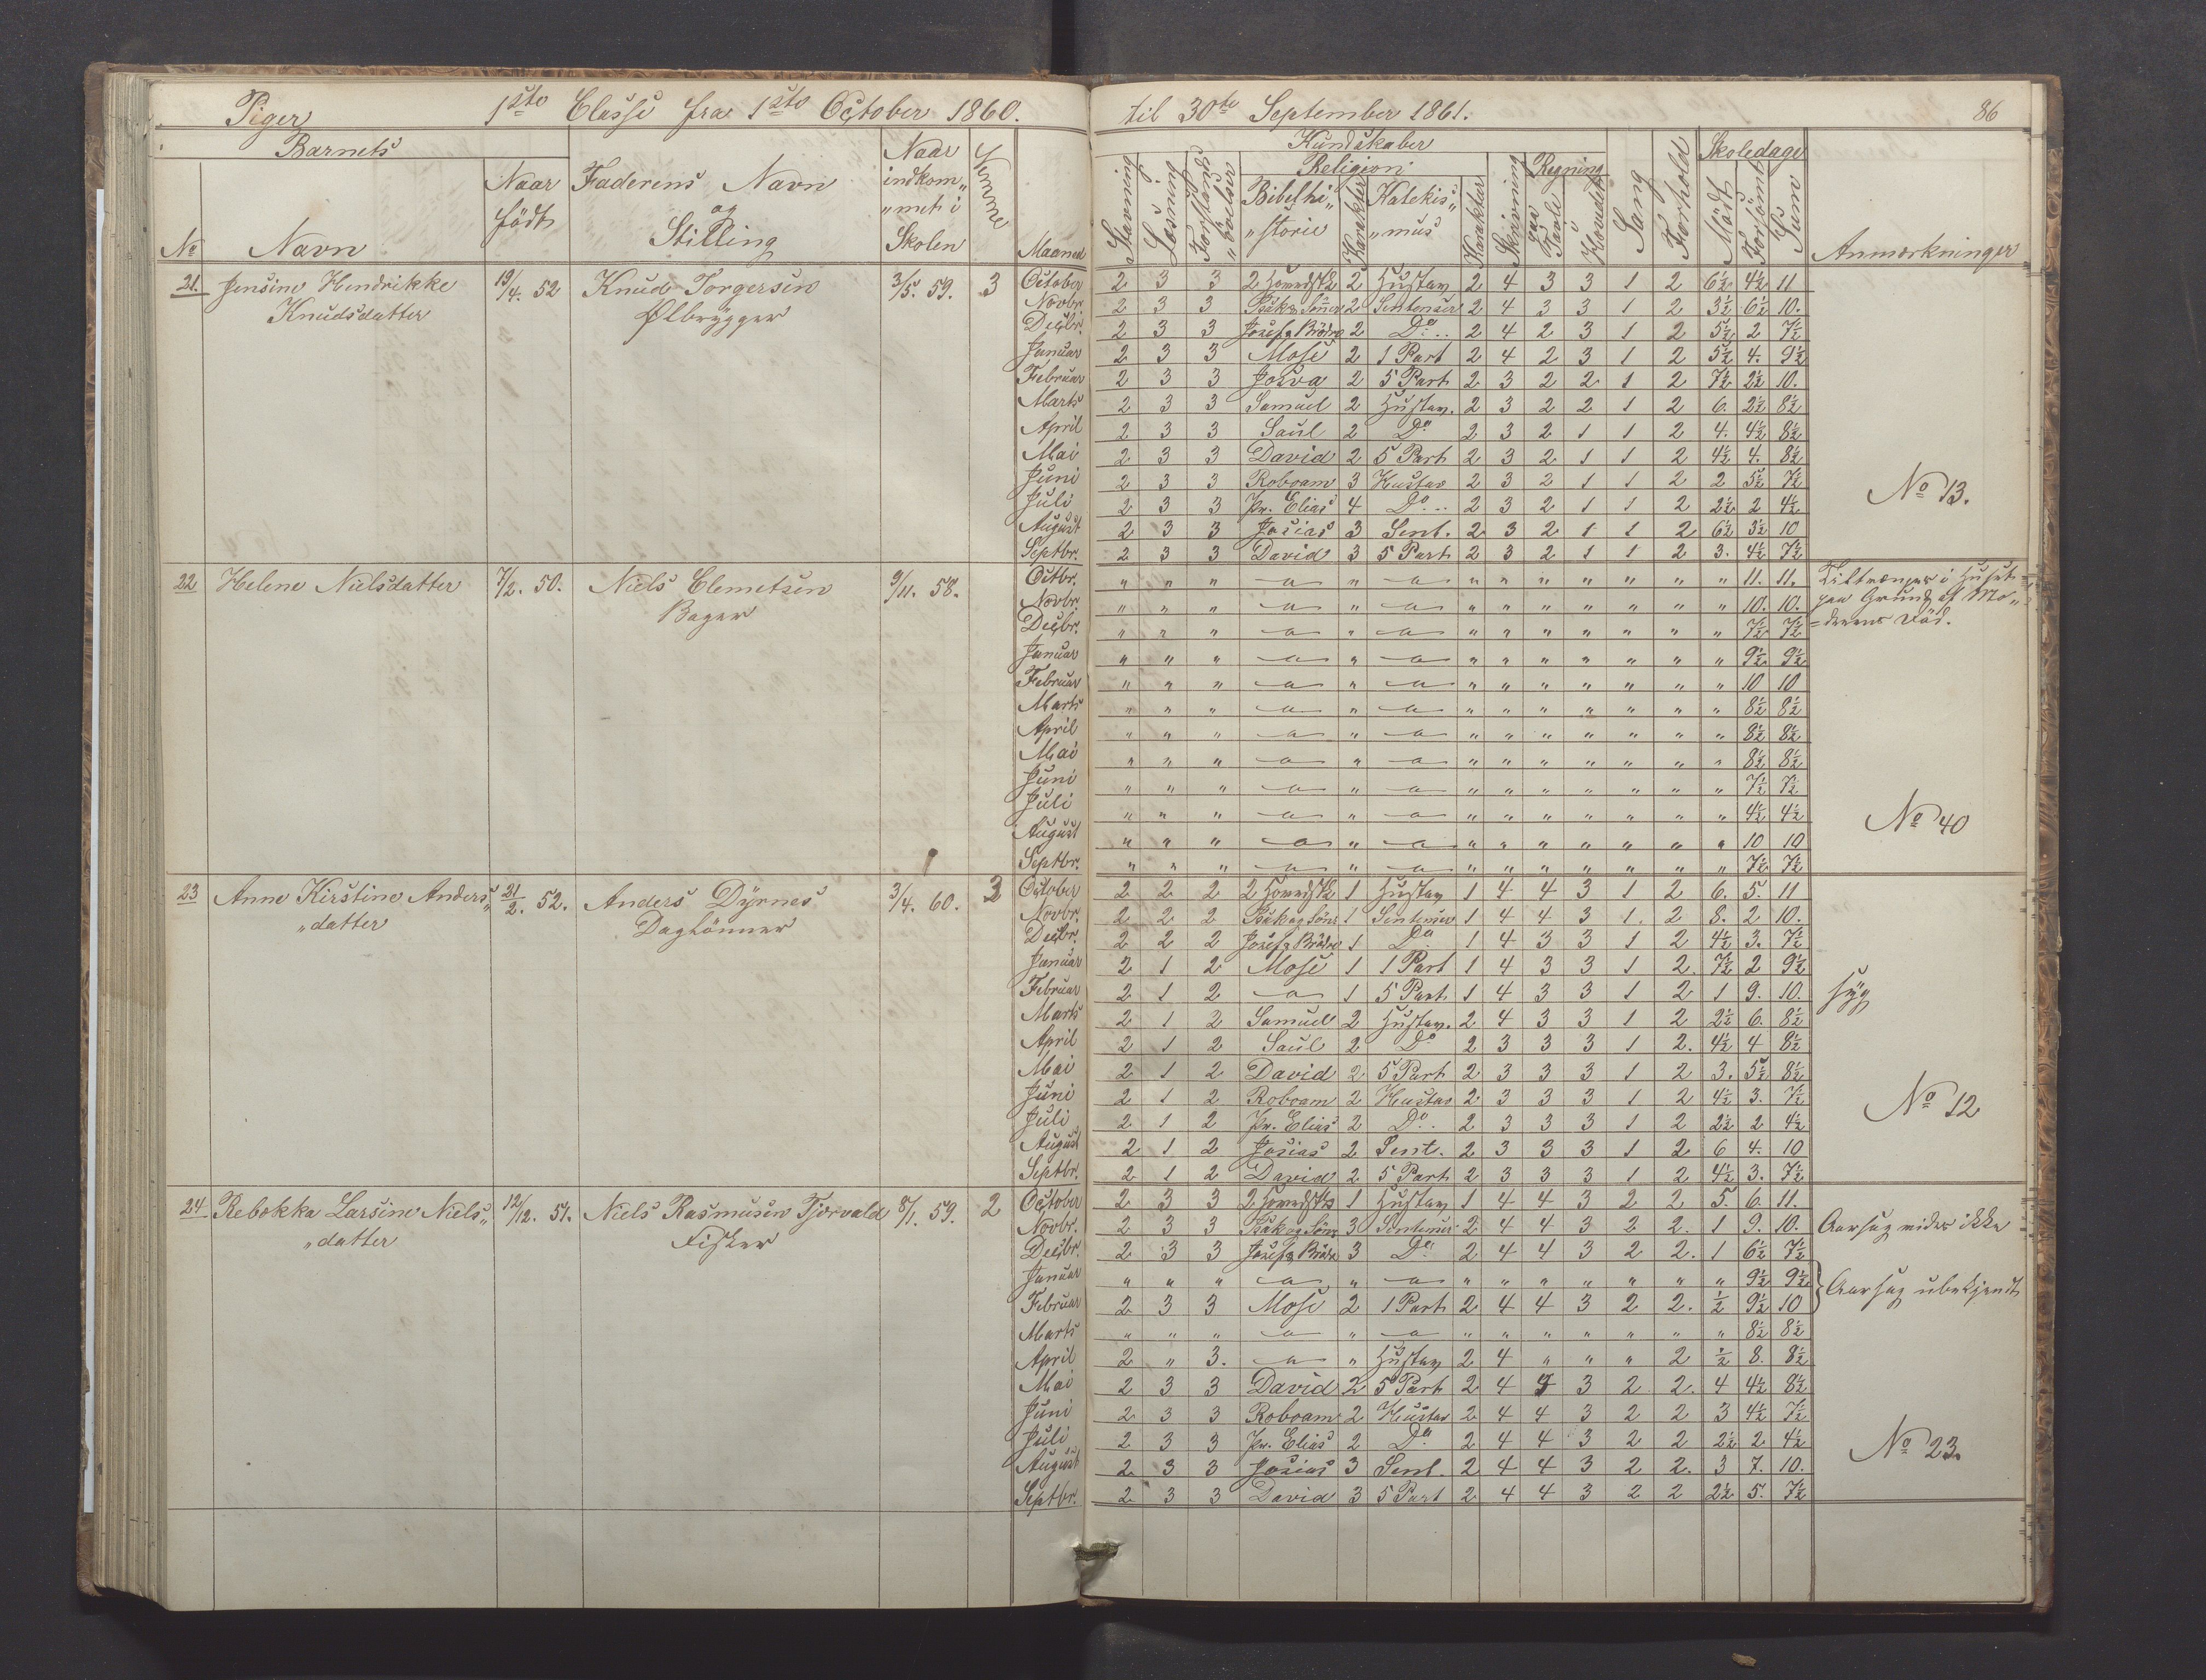 Piger 1ste Classe fra 1ste October 1860. til 30te September 1861. 86
Barnets
No Navn Naar födt Faderens Navn og Stilling Naar indkom„ „met i Skolen Nemme Maaned
Kundskaber
Stavning Læsning Forstands „övelser Religion Bibelhi„ „storie Karakter Katekis„ „mus Karakter Skrivning Regning paa Tavle i Hovedet Sang Forhold Skoledage Mödt Forsömt Sum Anmærkninger
21. Jensine Hendrikke 19/4. 52 Knud Torgersen 3/5. 59. 3
Knudsdatter Ølbrygger
October 2 3 3 2 2 Hustav 2 4 3 3 1 2 6½ 4½ 11
Novbr. 2 3 3 Isak & Sönner 2 Sentenser 2 4 3 3 1 2 3½ 6½ 10.
Decbr. 2 3 3 Josef & Brödre 2 Do 2 4 2 3 1 2 5½ 2 7½
Januar 2 3 3 Mose 2 1 Part 2 4 2 3 1 2 5½ 4. 9½
Februar 2 3 3 Josva 2 5 Part 2 3 2 2 1 2 7½ 2½ 10.
Marts 2 3 3 Samuel 2 Hustav. 2 3 2 2 1 2 6. 2½ 8½
April 2 3 3 Saul 2 Do 2 3 2 1 1 2 4. 4½ 8½
Mai 2 3 3 David 2 5 Part 2 3 2 1 1 2 4½ 4. 8½
Juni 2 3 3 Roboam 3 Hustav 2 3 2 1 1 2 2 5½ 7½
Juli 2 3 3 Pr. Elias 4 Do 2 3 2 1 1 2 2½ 2 4½ No 13.
August 2 3 3 Josias 3 Sent. 2 3 2 1 1 2 6½ 3½ 10
Septbr. 2 3 3 David 3 5 Part 2 3 2 1 1 2 3. 4½ 7½
22 Helene Nielsdatter 7/2. 50. Niels Clemetsen 9/11. 58.
Bager
Octbr. „ „ „ „ „ „ „ „ „ „ „ „ 11. 11. Tiltrænges i Huset
Novbr. „ „ „ „ „ „ „ „ „ „ „ 10. 10. paa Grund af Mo„
Decbr. „ „ „ „ „ „ „ „ „ „ „ 7½ 7½ =derens Död.
Januar „ „ „ „ „ „ „ „ „ „ „ 9½ 9½
Februar „ „ „ „ „ „ „ „ „ „ „ 10 10
Marts „ „ „ „ „ „ „ „ „ „ „ 8½ 8½
April „ „ „ „ „ „ „ „ „ „ „ 8½ 8½
Mai „ „ „ „ „ „ „ „ „ „ „ 8½ 8½
Juni „ „ „ „ „ „ „ „ „ „ „ 7½ 7½
Juli „ „ „ „ „ „ „ „ „ „ „ 4½ 4½
August „ „ „ „ „ „ „ „ „ „ „ 10 10 No 40
Septbr. „ „ „ „ „ „ „ „ „ „ „ 7½ 7½
23 Anne Kirstine Anders„ 21/2. 52. Anders Dyrnes 3/4. 60. 3
„datter Daglönner
October 2 2 2 2 1 Hustav 1 4 4 3 1 2 6. 5. 11
Novbr. 2 2 2 Isak og Sönr 1 Sentenser 1 4 4 3 1. 2 8. 2 10.
Decbr. 2 2 2 Josef & Brödre 1 Do 1 4 3 3 1 2 4½ 3. 7½
Januar 2 1 2 Mose 1 1 Part 1 4 3 3 1 2. 7½ 2 9½
Februar 2 1 2 1 5 Part 1 4 3 3 1 2 1 9. 10. Syg
Marts 2 1 2 Samuel 2 Hustav. 2 4 3 3 1 2 2½ 6. 8½
April 2 1 2 Saul 2 Do 2 3 3 3 1 2. 4½ 4 8½
Mai 2 1 2 David 2 5 Part 2 3 3 3 1 2 3. 5½ 8½
Juni 2 1 2 Roboam 2 Hustav 2 3 3 3 1 2 4½ 3. 7½
Juli 2 1 2 Pr. Elias 2 Do 2 3 3 3 1 2 2½ 2 4½ No 12
August 2 1 2 Josias 2 Sent. 2 3 3 3 1 2 6 4. 10
Septbr. 2 1 2 David 2 5 Part 2 3 3 3 1 2 4½ 3. 7½
24 Rebekka Larsine Niels„ 12/12. 51. Niels Rasmusen Tjorvald 8/1. 59. 2
„datter Fisker
October 2 3 3 2 1 Hustav 1 4 4 3 2 2 5. 6. 11.
Novbr. 2 3 3 Isak og Sönr 3 Sentenser 2 4 4 3 2 2. 1 9. 10. Aarsag vides ikke
Decbr. 2 3 3 Josef & Brödre 3 Do 2 4 4 3 2 2. 1 6½ 7½
Januar „ „ „ „ „ „ „ „ „ „ „ 9½ 9½
Februar 2 3 3 Mose 2 1 Part 2 4 4 3 2 2. ½ 9½ 10 } Aarsag ubekjendt
Marts „ „ „ „ „ „ „ „ „ „ „ 8½ 8½
April 2 „ 3. „ Hustav 2 4 „ „ „ 2 ½ 8. 8½
Mai 2 3 3 David 2 5 Part 2 4 4 3 2 2. 4 4½ 8½
Juni 2 3 3 Roboam 2 Hustav 2 4 4 3 2 2 3 4½ 7½
Juli 2 3 3 Pr. Elias 2 Do 2 4 4 3 2 2 2½ 2 4½ No 23.
August 2 3 3 Josias 3 Sent. 2 4 4 3 2 2. 3 7. 10.
Septbr. 2 3 3 David 3 5 Part 2 4 4 3 2 2 2½ 5. 7½